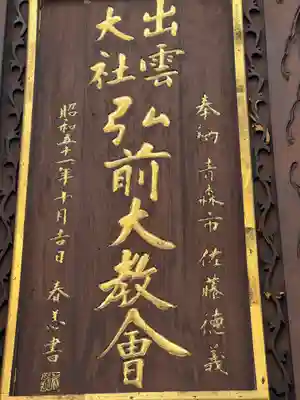 奉納 青森市 佐藤徳義
出雲
大社
弘前大教會
昭和五十一年十月吉日 春美書